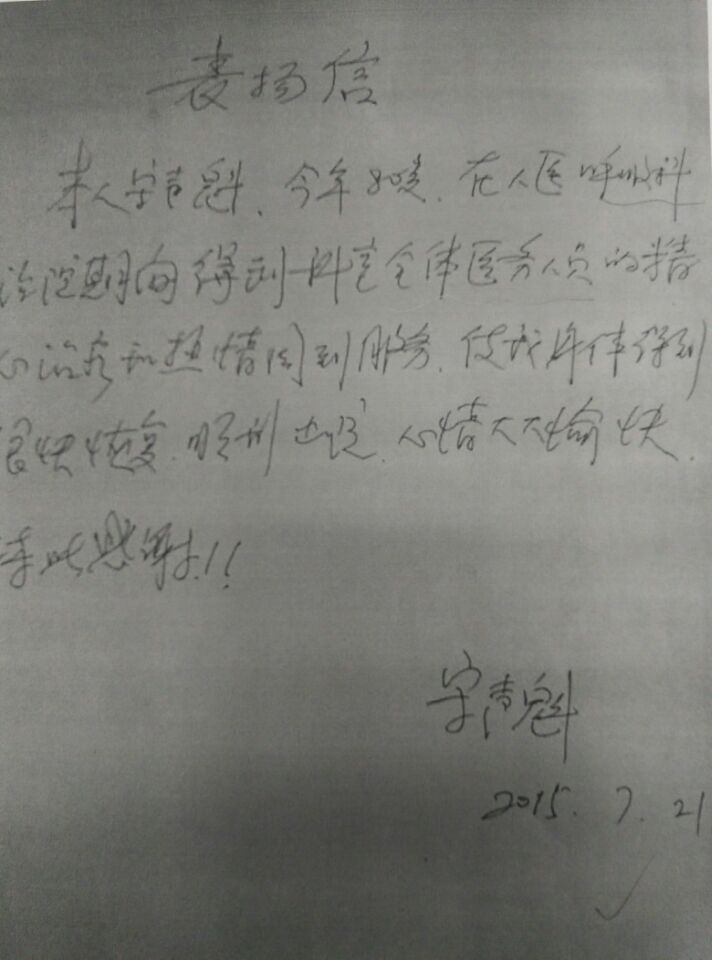 表扬信
本人宋声魁、今年80岁、在人医呼吸科
治疗期间得到科室全体医务人员的精
心治疗和热情周到服务、使我身体得到
很快恢复、顺利出院、心情大大愉快、
在此感谢!!
宋声魁
2015.7.21